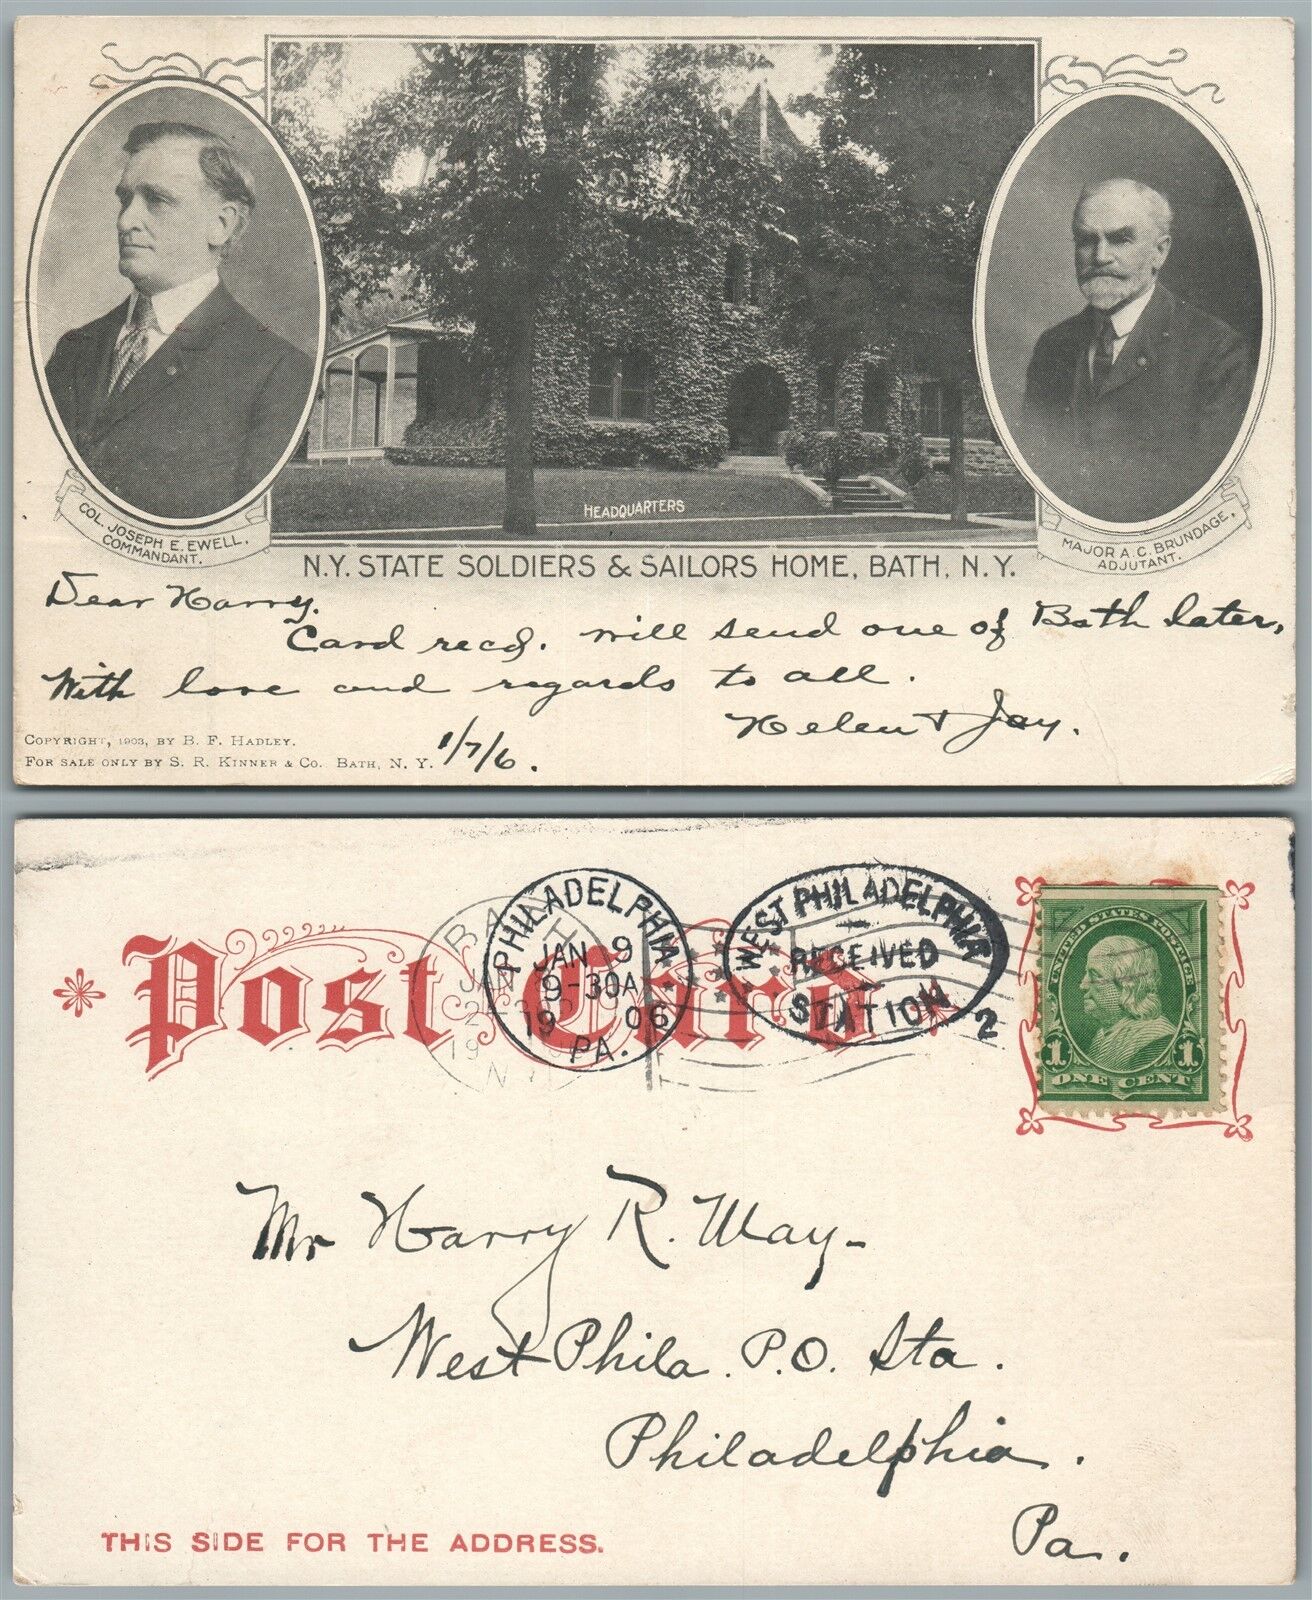 COL. JOSEPH E. EWELL,
COMMANDANT.
HEADQUARTERS
MAJOR A. C. BRUNDAGE,
ADJUTANT.
N.Y. STATE SOLDIERS & SAILORS HOME, BATH, N.Y.
Dear Harry.
Card recd. will send one of Bath later,
With love and regards to all.
Helen & Jay.
COPYRIGHT, 1903, BY B. F. HADLEY.
FOR SALE ONLY BY S. R. KINNER & CO. BATH, N. Y.
1/7/6.
Post Card
BATH
JAN
2
19
N.Y.
PHILADELPHIA
JAN 9
9-30A
19 06
PA.
WEST PHILADELPHIA
RECEIVED
STATION
2
UNITED STATES POSTAGE
1 1
ONE CENT
Mr Harry R. May-
West Phila. P.O. Sta.
Philadelphia.
Pa.
THIS SIDE FOR THE ADDRESS.